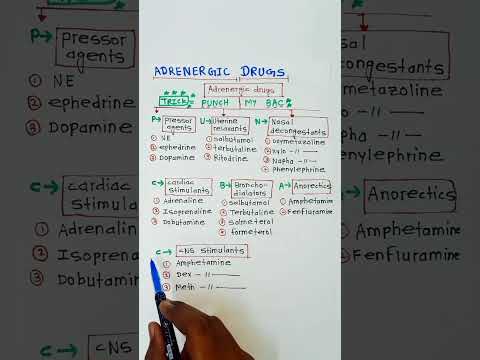 ADRENERGIC DRUGS
Adrenergic drugs
TRICK = PUNCH MY BAG
P→ Pressor agents
① NE
② ephedrine
③ Dopamine
U→ Uterine relaxants
① Salbutamol
② terbutaline
③ Ritodrine
N→ Nasal decongestants
① Oxymetazoline
② Xylo -〃-
③ Napha -〃-
④ Phenylephrine
C→ cardiac stimulants
① Adrenaline
② Isoprenaline
③ Dobutamine
B→ Broncho-dialators
① Salbutamol
② Terbutaline
③ Salmeterol
④ formeterol
A→ Anorectics
① Amphetamine
② Fenfluramine
C→ CNS stimulants
① Amphetamine
② Dex -〃-
③ Meth -〃-
P→ Pressor agents
① NE
② ephedrine
③ Dopamine
Nasal
congestants
metazoline
-〃-
-〃-
enylephrine
C→ cardiac stimulants
① Adrenalin
② Isopren
③ Dobutam
Anorectics
Amphetamine
Fenfluramine
C→ CNS